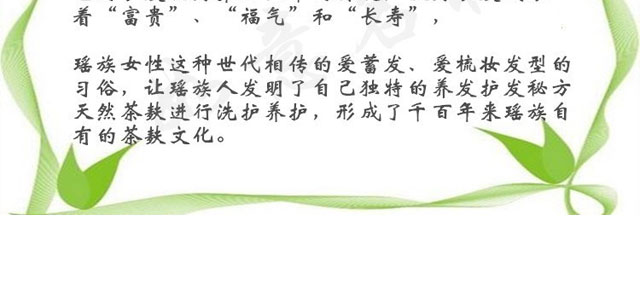 着“富贵”、“福气”和“长寿”，
瑶族女性这种世代相传的爱蓄发、爱梳妆发型的
习俗，让瑶族人发明了自己独特的养发护发秘方
天然茶麸进行洗护养护，形成了千百年来瑶族自
有的茶麸文化。